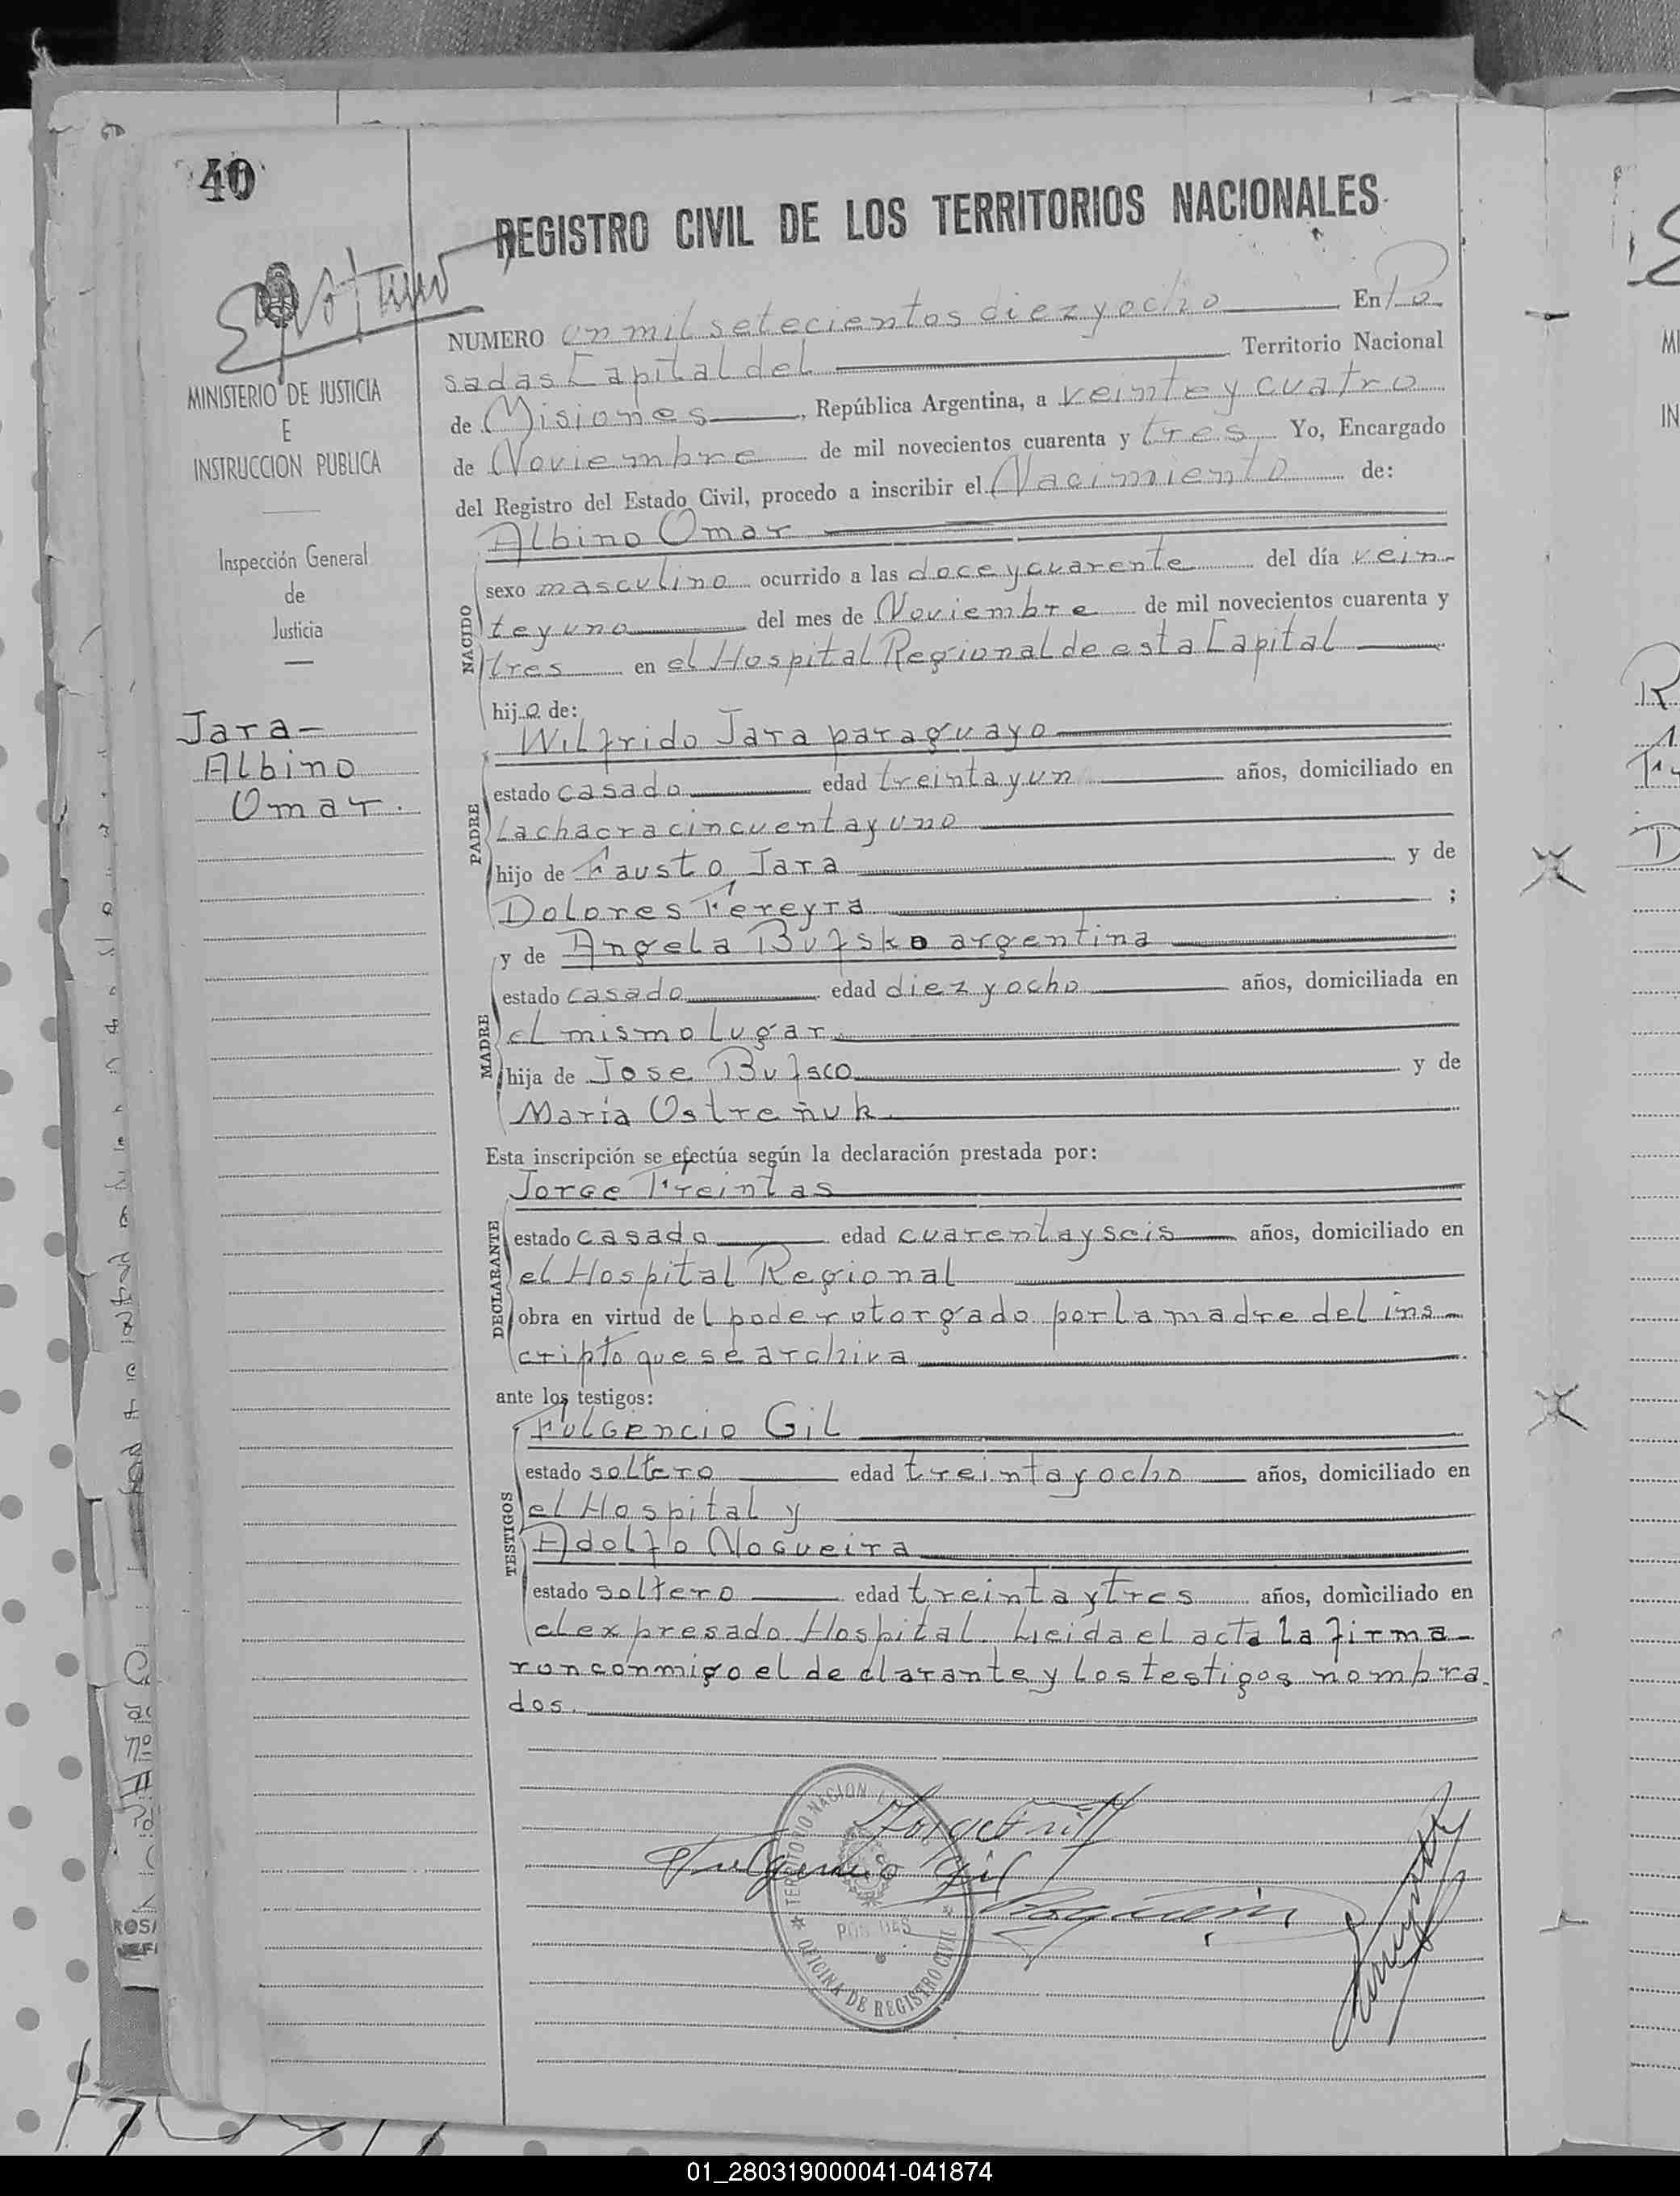 40
REGISTRO CIVIL DE LOS TERRITORIOS NACIONALES
MINISTERIO DE JUSTICIA
E
INSTRUCCION PUBLICA
Inspección General
de
Justicia
Jara-
Albino
Omar.
NUMERO un mil setecientos diez y ocho En Po
sadas Capital del Territorio Nacional
de Misiones, República Argentina, a veinte y cuatro
de Noviembre de mil novecientos cuarenta y tres Yo, Encargado
del Registro del Estado Civil, procedo a inscribir el Nacimiento de:
Albino Omar
NACIDO
sexo masculino ocurrido a las doce y cuarente del día vein-
te y uno del mes de Noviembre de mil novecientos cuarenta y
tres en el Hospital Regional de esta Capital
hijo de:
Wilfrido Jara paraguayo
PADRE
estado casado edad treinta y un años, domiciliado en
la chacra cincuenta y uno
hijo de Fausto Jara y de
Dolores Fereyra ;
y de Angela Bufsko argentina
MADRE
estado casado edad diez y ocho años, domiciliada en
el mismo lugar
hija de Jose Bufsco y de
Maria Ostreñuk.
Esta inscripción se efectúa según la declaración prestada por:
Jorge Freintas
DECLARANTE
estado casado edad cuarenta y seis años, domiciliado en
el Hospital Regional
obra en virtud del poder otorgado por la madre del ins-
cripto que se archiva
ante los testigos:
Fulgencio Gil
TESTIGOS
estado soltero edad treinta y ocho años, domiciliado en
el Hospital y
Adolfo Nogueira
estado soltero edad treinta y tres años, domiciliado en
el expresado Hospital. Leida el acta la firma-
ron conmigo el declarante y los testigos nombra-
dos.
Fulgencio Gil
TERRITORIO NACIONAL
POSADAS
OFICINA DE REGISTRO CIVIL
01_280319000041-041874